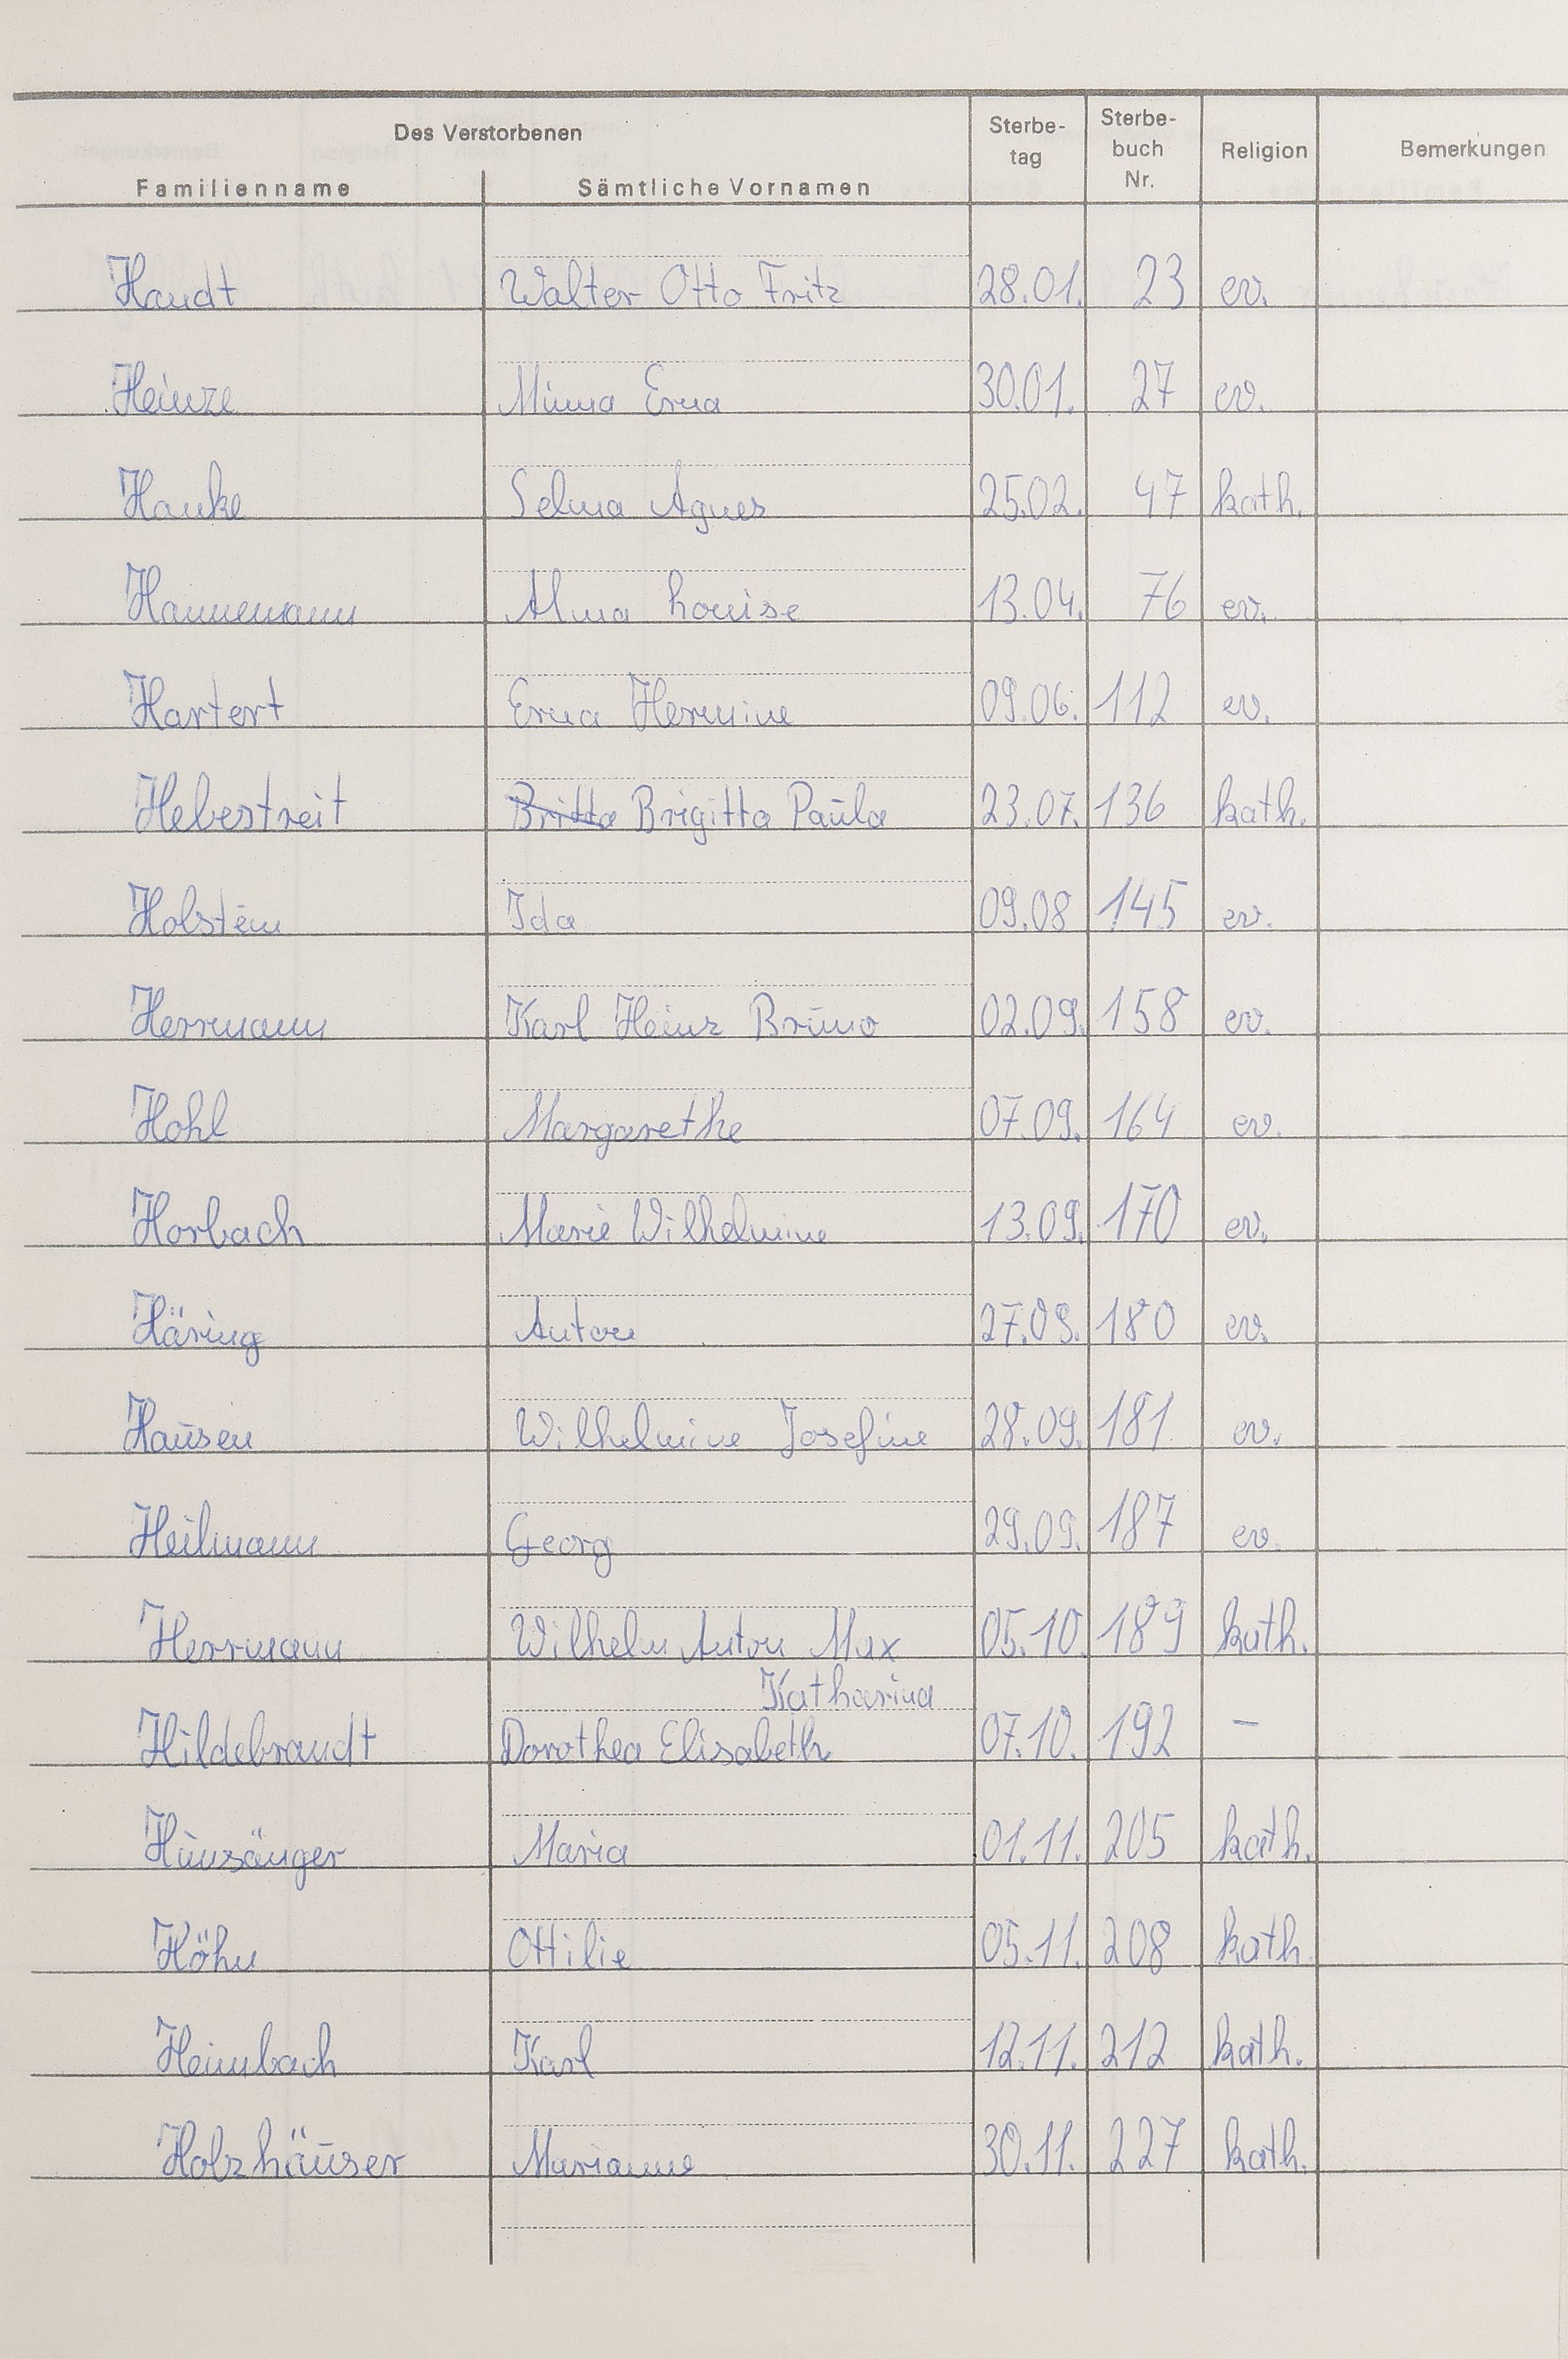 Des Verstorbenen
Familienname Sämtliche Vornamen Sterbe-tag Sterbe-buch Nr. Religion Bemerkungen
Handt Walter Otto Fritz 28.01. 23 ev.
Heinze Minna Erna 30.01. 27 ev.
Hanke Selma Agnes 25.02. 47 kath.
Hannemann Alma Louise 13.04. 76 ev.
Hartert Erna Hermine 09.06. 112 ev.
Hebestreit Britta Brigitta Paula 23.07. 136 kath.
Holstein Ida 09.08 145 ev.
Herrmann Karl Heinz Bruno 02.09. 158 ev.
Hohl Margarethe 07.09. 164 ev.
Horbach Marie Wilhelmine 13.09. 170 ev.
Häring Anton 27.09. 180 ev.
Hausen Wilhelmine Josefine 28.09. 181 ev.
Heilmann Georg 29.09. 187 ev.
Herrmann Wilhelm Anton Max 05.10 189 kath.
Katharina
Hildebrandt Dorothea Elisabeth 07.10. 192 –
Hünsänger Maria 01.11. 205 kath.
Höhn Ottilie 05.11. 208 kath
Heimbach Karl 12.11. 212 kath.
Holzhäuser Marianne 30.11. 227 kath.